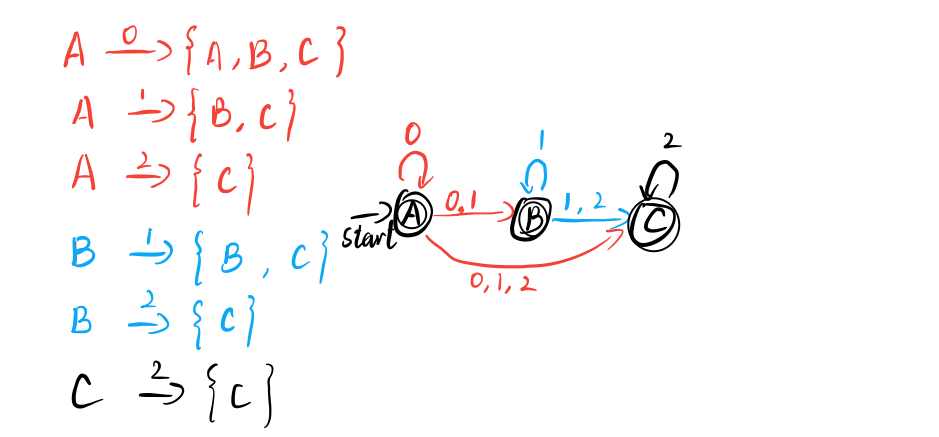 A 0→ {A, B, C}
A 1→ {B, C}
A 2→ {C}
B 1→ {B, C}
B 2→ {C}
C 2→ {C}
0
1
2
start
A
0,1
B
1,2
C
0,1,2